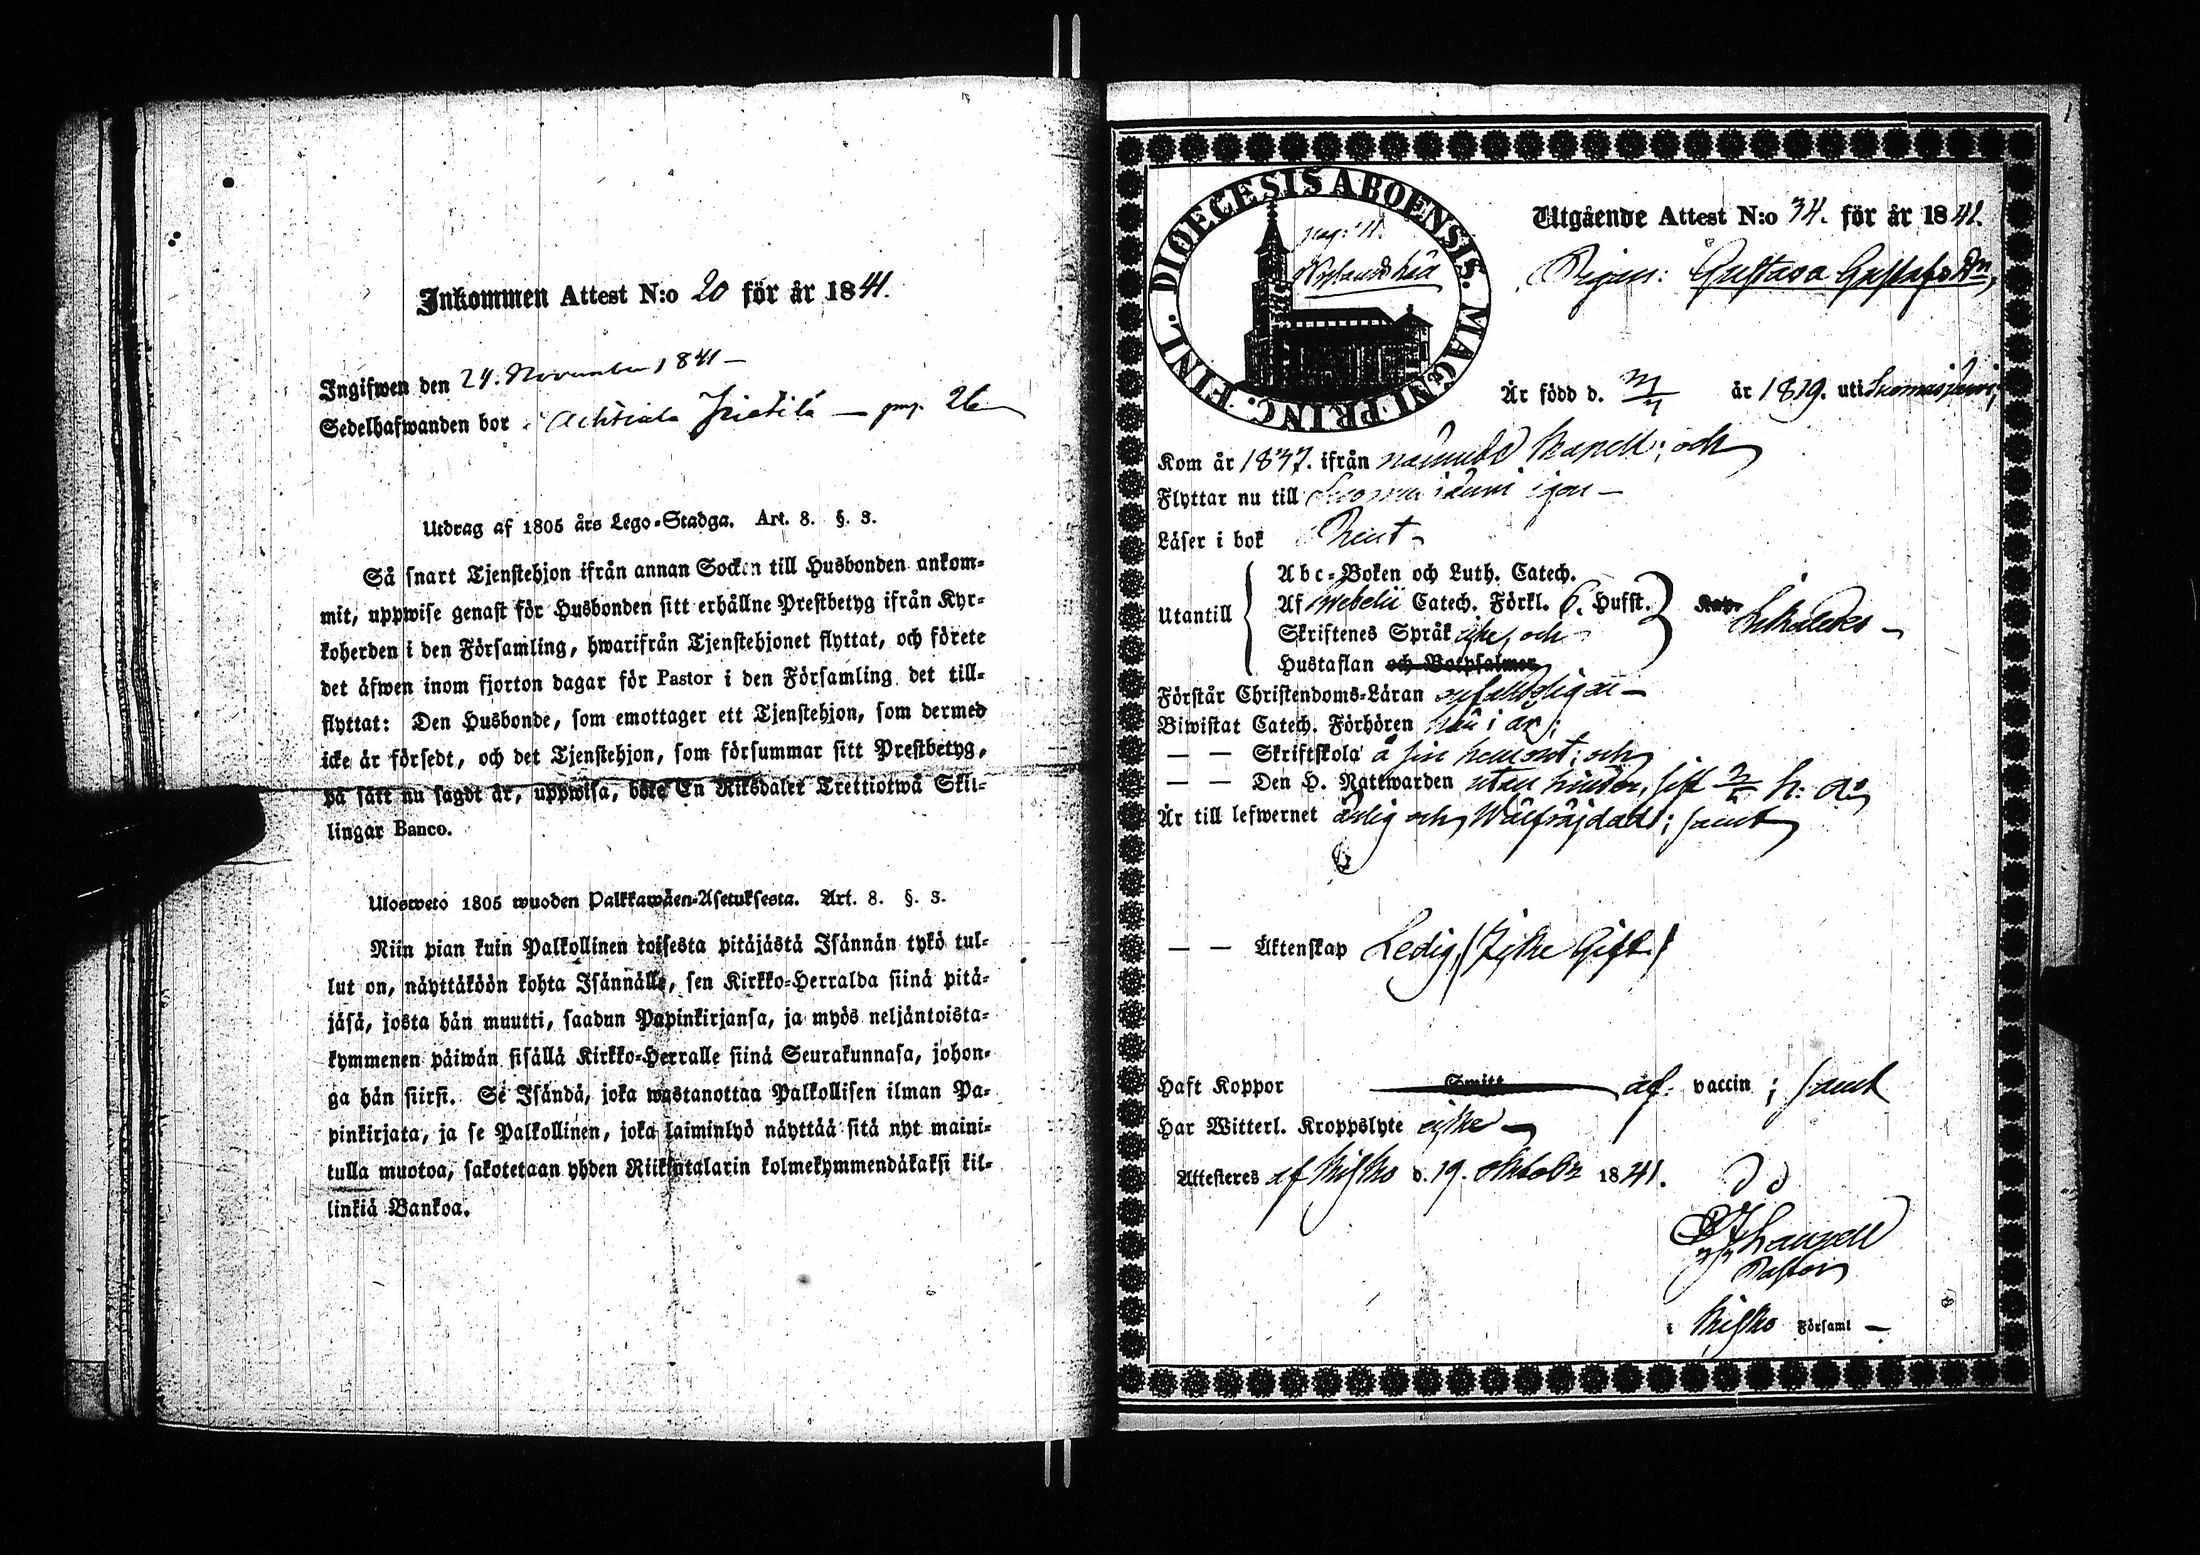 Inkommen Attest N:o 20 för år 1841.
Ingifwen den 24. November 1841 —
Sedelhafwanden bor i — pag. 26
Utdrag af 1805 års Lego-Stadga. Art. 8. §. 3.
Så snart Tjenstehjon ifrån annan Socken till Husbonden ankom-
mit, uppwise genast för Husbonden sitt erhållne Prestbetyg ifrån Kyr-
koherden i den Församling, hwarifrån Tjenstehjonet flyttat, och förete
det äfwen inom fjorton dagar för Pastor i den Församling det till-
flyttat: Den Husbonde, som emottager ett Tjenstehjon, som dermed
icke är försedt, och det Tjenstehjon, som försummar sitt Prestbetyg,
på sätt nu sagdt är, uppwisa, böte En Riksdaler Trettiotwå Skil-
lingar Banco.
Ulosweto 1805 wuoden Palkkawäen-Asetuksesta. Art. 8. §. 3.
Niin pian kuin Palkollinen toisesta pitäjästä Isännän tykö tul-
lut on, näyttäköön kohta Isännälle, sen Kirkko-Herralda siinä pitä-
jäsä, josta hän muutti, saadun Papinkirjansa, ja myös neljäntoista-
kymmenen päiwän sisällä Kirkko-Herralle siinä Seurakunnasa, johon-
ga hän siirsi. Se Isändä, joka wastanottaa Palkollisen ilman Pa-
pinkirjata, ja se Palkollinen, joka laiminlyö näyttää sitä nyt maini-
tulla muotoa, sakotetaan yhden Riikintalarin kolmekymmendäkaksi kil-
linkiä Bankoa.
DIOECESIS ABOENSIS. MAGNI PRINC. FINL.
pag: 11.
Utgående Attest N:o 34. för år 1841.
Pigan: Gustava Gustafs Dr,
Är född d. år 1819. uti Suomusjärvi;
Kom år 1837. ifrån nämnde Kapell; och
Flyttar nu till Suomusjärvi igen —
Läser i bok Rent —
Utantill
Abc-Boken och Luth. Catech.
Af Svebelii Catech. Förkl. 6. Hufst.
Skriftenes Språk icke, och
Hustaflan och Botpsalmer
Förstår Christendoms-Läran enfaldeligen —
Biwistat Catech. Förhören nu i år;
— — Skriftskola å sin hemort; och
— — Den H. Nattwarden utan hinder, sist h: år
Är till lefwernet ärlig och Wälfräjdad; samt
— — Äktenskap Ledig, (Icke Gift.)
Haft Koppor Smitt af: vaccin; samt
Har Witterl. Kroppslyte icke —
Attesteres af Kisko d. 19. Oktober 1841.
Pastor
i Kisko Församl —